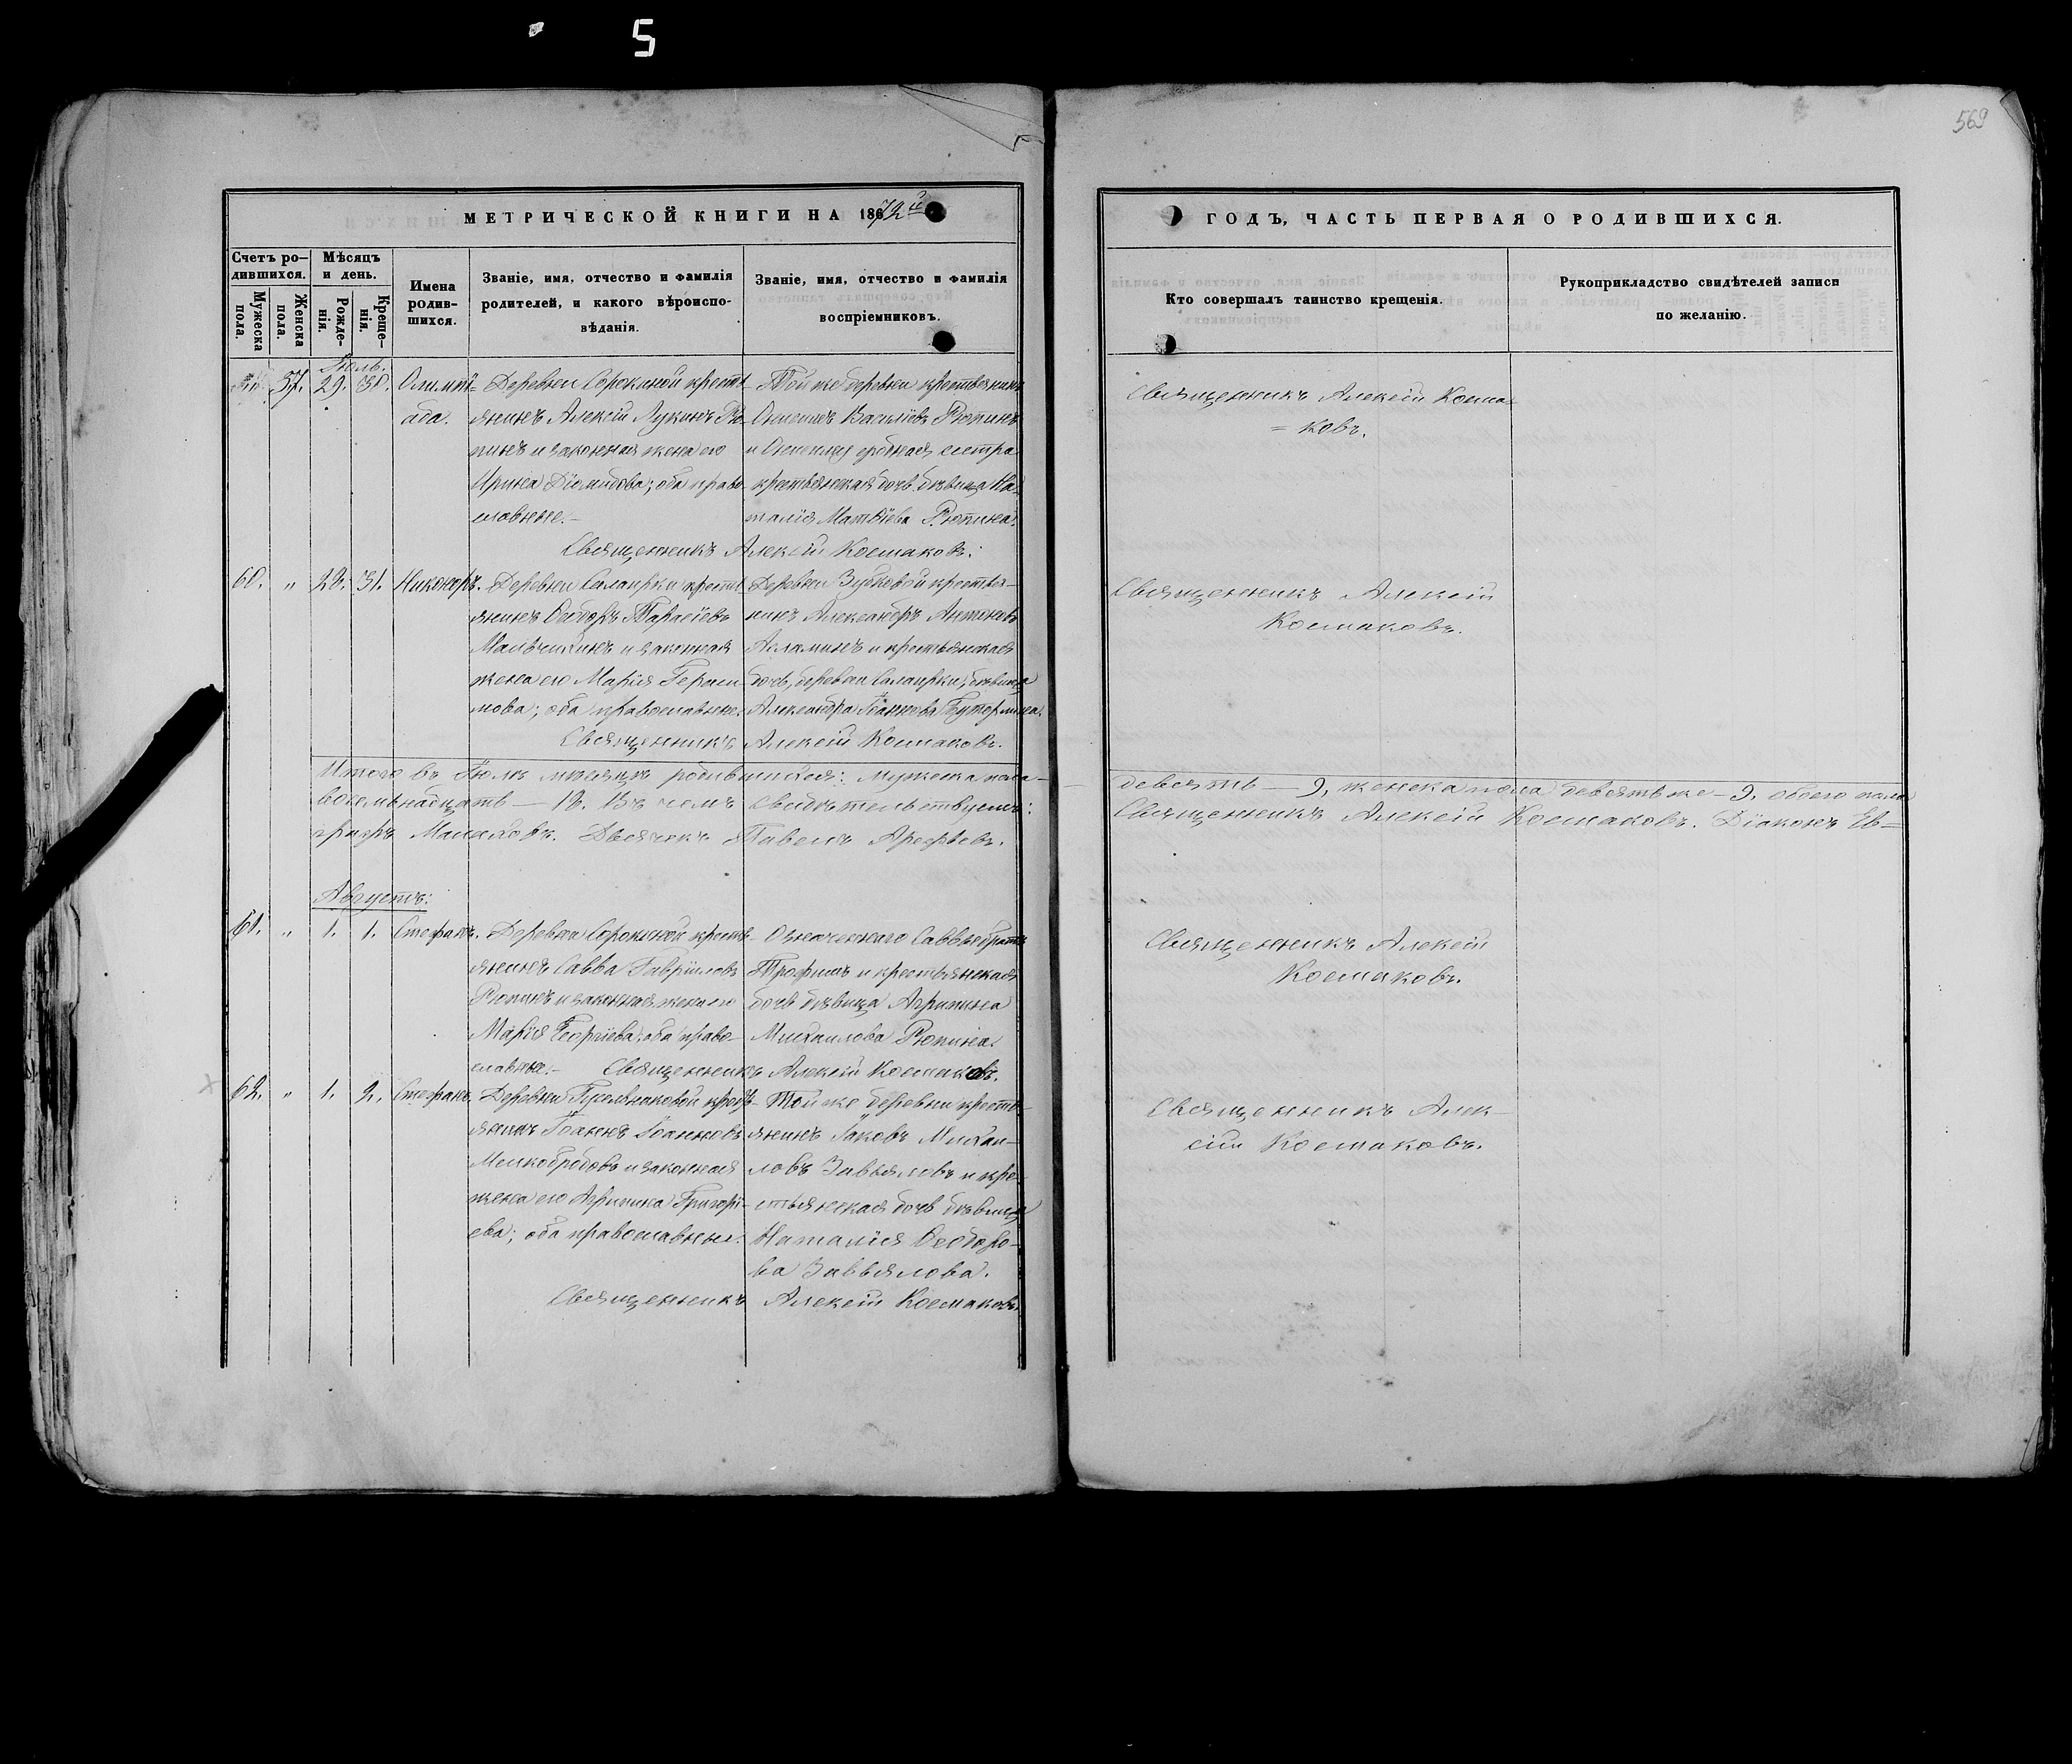 5
569
МЕТРИЧЕСКОЙ КНИГИ НА 1872й
ГОДЪ, ЧАСТЬ ПЕРВАЯ О РОДИВШИХСЯ.
Счетъ ро-
дившихся.
Мужеска пола.
Женска пола.
Мѣсяцъ
и день.
Рожде-
нія.
Креще-
нія.
Имена
родив-
шихся.
Званіе, имя, отчество и фамилія
родителей, и какого вѣроиспо-
вѣданія.
Званіе, имя, отчество и фамилія
воспріемниковъ.
Кто совершалъ таинство крещенія.
Рукоприкладство свидѣтелей записи
по желанію.
Іюль.
57. 29. 30.
Олимпі-
ада.
Деревни Сорокиной кресть-
янинъ Алексій Лукинъ Рю-
пинъ и законная жена его
Ирина Діомидова; оба право-
славные.-
Той же деревни крестьянинъ
Василіевъ Рюпинъ
и сестра
крестьянская дочь дѣвица На-
талія Матѳіева Рюпина.
Священникъ Алексій Космаковъ.
Священникъ Алексій Косма-
= ковъ.
60. „ 28. 31. Никоноръ.
Деревни Салаирки кресть-
янинъ Ѳеодоръ Тарасіевъ
и законная
жена его Марія Гераси-
мова; оба православные.
Деревни Зубковой крестья-
нинъ Александръ Антиповъ
Асламинъ и крестьянская
дочь, деревни Салаирки, дѣвица
Александра Іоаннова Бутормина.
Священникъ Алексій Космаковъ.
Священникъ Алексій
Космаковъ.
Итого въ Іюлѣ мѣсяцѣ родившихся: мужеска пола-
девять - 9, женска пола девять же - 9, обоего пола
восемьнадцать - 18. Въ чемъ свидѣтельствуемъ:
Священникъ Алексій Космаковъ. Діаконъ Ев=
графъ Дьячекъ Павелъ Арефьевъ.
Августъ:
61. „ 1. 1. Стефанъ.
Деревни Сорокиной кресть-
янинъ Савва Гавріиловъ
Рюпинъ и законная жена его
Марія Георгіева; оба право-
славные.-
Означеннаго Саввы братъ
Трофимъ и крестьянская
дочь дѣвица Агрипина
Михаилова Рюпина.
Священникъ Алексій Космаковъ.
Священникъ Алексій
Космаковъ.
62. „ 1. 2. Стефанъ.
Деревни Гусельниковой кресть-
янинъ Іоаннъ Іоанновъ
Мелкобродовъ и законная
жена его Агрипина Григорі-
ева; оба православные.
Той же деревни кресть-
янинъ Іаковъ Михаи-
ловъ Завьяловъ и кре-
стьянская дочь дѣвица
Наталія Ѳеодоро-
ва Завьялова.
Священникъ Алексій Космаковъ.
Священникъ Алек-
сій Космаковъ.